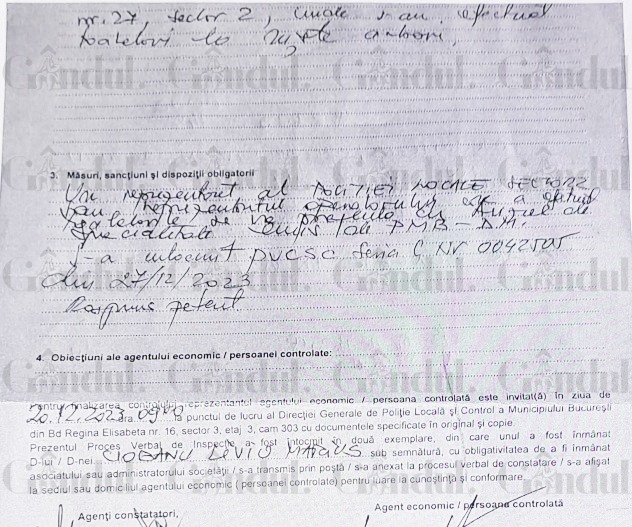 nr. 27, sector 2, unde s-au efectuat
toaletări la arbori,
Gândul. Gândul. Gândul.
3. Măsuri, sancțiuni și dispoziții obligatorii
Un reprezentant al POLIȚIEI LOCALE SECTOR 2
sau reprezentantul operatorului a
toaletările de
specialitate ale PMB - D.M.
S-a întocmit PVCSC seria C NR 0042505
din 27/12/2023
Răspuns petent.
4. Obiecțiuni ale agentului economic / persoanei controlate:
Gândul. Gândul. Gândul.
Pentru finalizarea controlului reprezentantul agentului economic / persoana controlată este invitat(ă) în ziua de
20.12.2023 ora. 09:00 la punctul de lucru al Direcției Generale de Poliție Locală și Control a Municipiului București
din Bd Regina Elisabeta nr. 16, sector 3, etaj 3, cam 303 cu documentele specificate în original și copie.
Prezentul Proces Verbal de Inspecție a fost întocmit în două exemplare, din care unul a fost înmânat
D-lui / D-nei CIOBANU LIVIU MARIUS sub semnătură, cu obligativitatea de a fi înmânat
asociatului sau administratorului societății / s-a transmis prin poștă / s-a anexat la procesul verbal de constatare / s-a afișat
la sediul sau domiciliul agentului economic / persoanei controlate) pentru luare la cunoștință și conformare.
Agenți constatatori,
Agent economic / persoana controlată